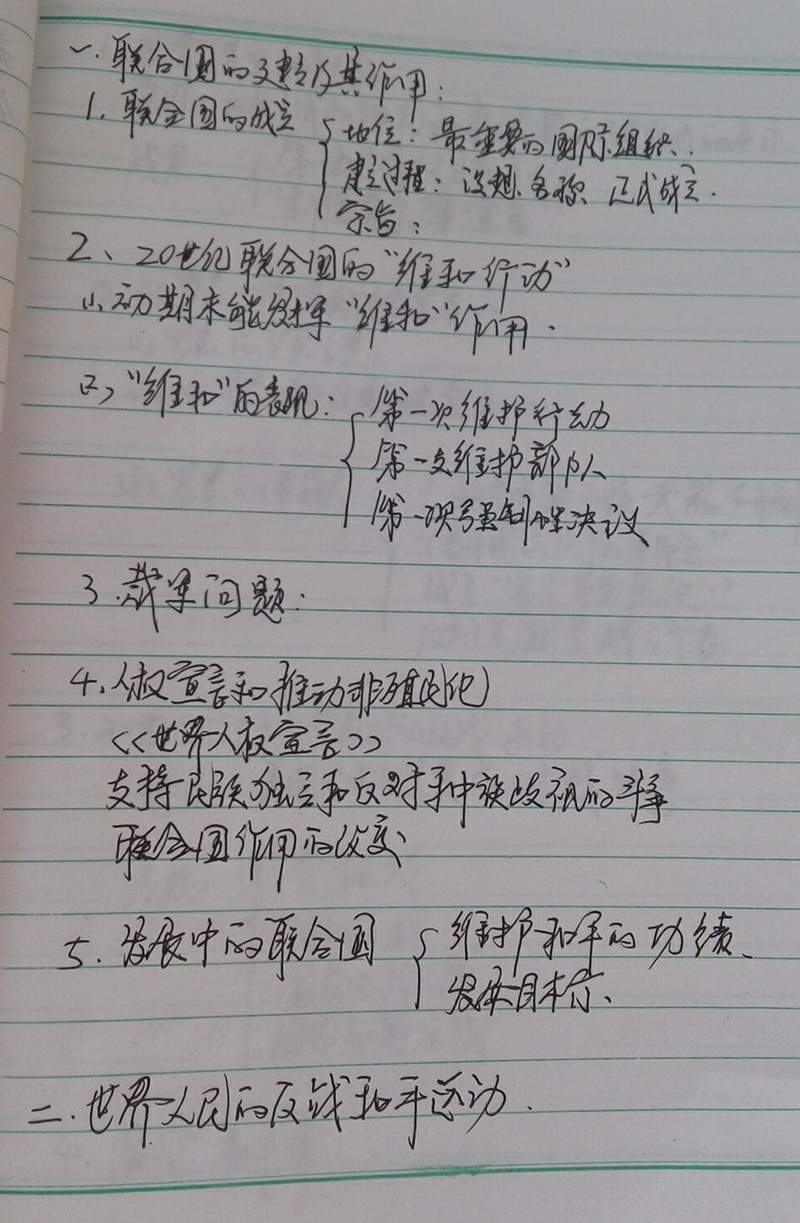 一.联合国的建立及其作用:
1.联合国的成立 地位:最重要的国际组织.
建立过程:设想.名称.正式成立.
宗旨:
2、20世纪联合国的"维和行动"
(1)、初期未能发挥"维和"作用.
(2)、"维和"的表现: 第一次维护行动
第一支维护部队
第一次强制性决议
3.裁军问题.
4、人权宣言和推动非殖民化
<<世界人权宣言>>
支持民族独立和反对种族歧视的斗争
联合国作用的改变
5.发展中的联合国 维护和平的功绩、
发展目标、
二.世界人民的反战和平运动.